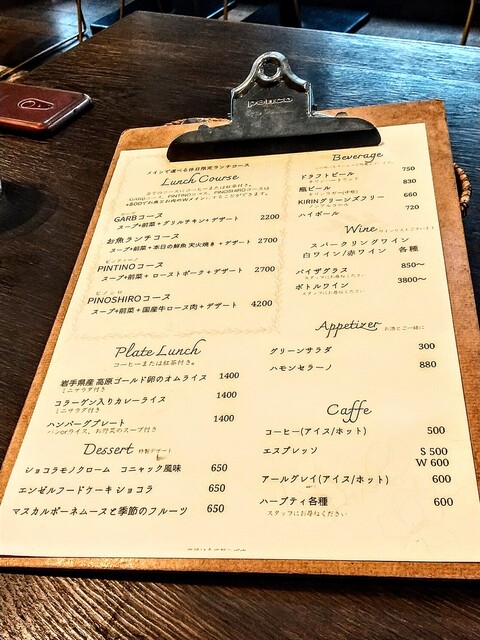 メインで選べる休日限定ランチコース
Lunch Course
GARBコース
スープ+前菜+グリルチキン+デザート 2200
お魚ランチコース
スープ+前菜+本日の鮮魚 天火焼き+デザート 2700
PINTINOコース
スープ+前菜+ローストポーク+デザート 2700
PINOSHIROコース
スープ+前菜+国産牛ロース肉+デザート 4200
Plate Lunch
コーヒーまたは紅茶付き。
岩手県産 高原ゴールド卵のオムライス 1400
ミニサラダ付き
コラーゲン入りカレーライス 1400
ミニサラダ付き
ハンバーグプレート 1400
パンorライス、お野菜のスープ付き
Dessert 特製デザート
ショコラモノクローム コニャック風味 650
エンゼルフードケーキ ショコラ 650
マスカルポーネムースと季節のフルーツ 650
Beverage
ドラフトビール 750
瓶ビール 830
KIRINグリーンズフリー 660
ノンアルコール
ハイボール 720
Wine
スパークリングワイン
白ワイン/赤ワイン 各種
バイザグラス 850〜
スタッフにお尋ねください
ボトルワイン 3800〜
スタッフにお尋ねください
Appetizer お酒とご一緒に
グリーンサラダ 300
ハモンセラーノ 880
Caffe
コーヒー(アイス/ホット) 500
エスプレッソ S 500
W 600
アールグレイ(アイス/ホット) 600
ハーブティ各種 600
スタッフにお尋ねください